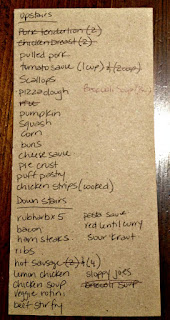 Upstairs
Pork tenderloin (2)
Chicken breast (2)
pulled pork
tomato sauce (1 cup) + (2 cups)
Scallops
pizza dough
rice
pumpkin
Squash
corn
buns
cheese sauce
pie crust
puff pastry
chicken strips (cooked)
Down stairs
rubharb x 5 pesto sauce
bacon red lentil curry
ham steaks. Sour Kraut
ribs
hot sausage (2) + (4)
lemon chicken sloppy joes
chicken soup Broccoli Soup
veggie rotini
beef stir fry